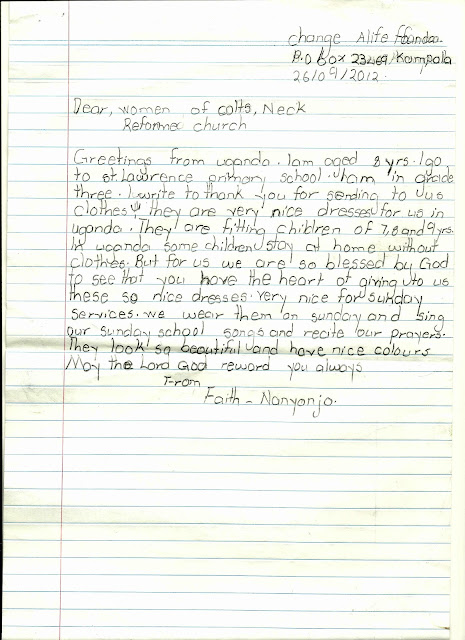 change Alife
P.O Box 23469 Kampala
26/09/2012.
Dear, women of colts, Neck
Reformed church
Greetings from uganda. I am aged 8 yrs. I go
to st. lawrence primary school. Iam in grade
three. I write to thank you for sending to us
clothes. They are very nice dresses for us in
uganda. They are fitting children of 7,8 and 9 yrs.
In uganda some children stay at home without
clothes. But for us we are so blessed by God
to see that you have the heart of giving to us
these so nice dresses. very nice for sunday
services. we wear them on sunday and sing
our sunday school songs and recite our prayers.
They look so beautiful and have nice colours
May the Lord God reward you always
From
Faith - Nanyonjo.